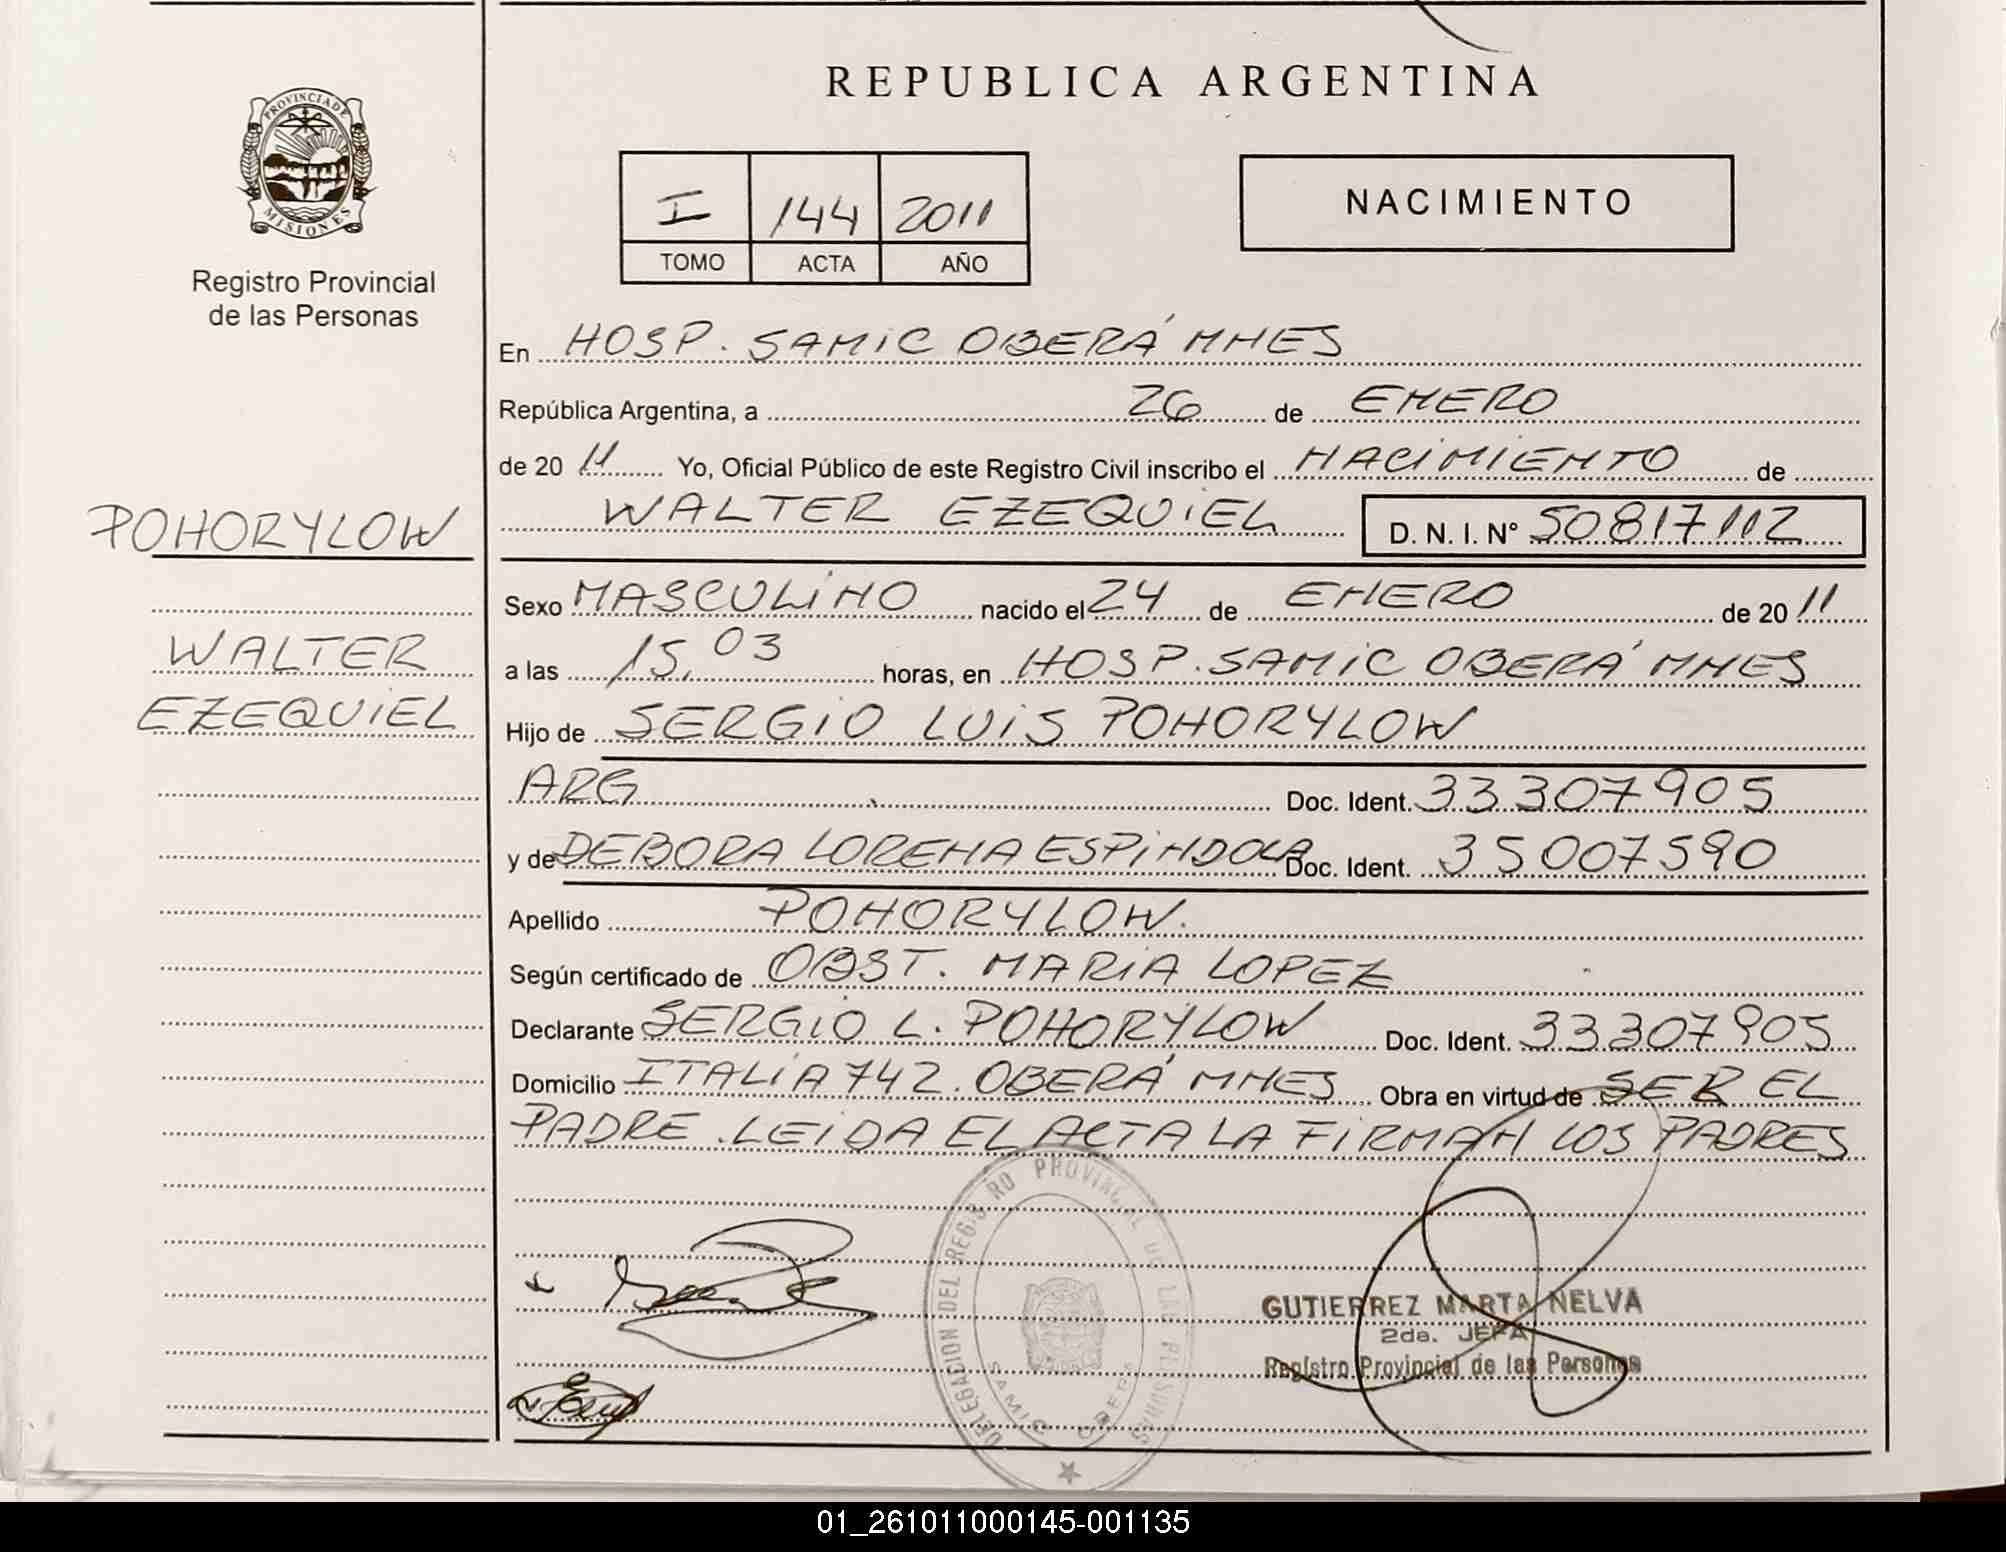 REPUBLICA ARGENTINA
PROVINCIA DE
MISIONES
Registro Provincial
de las Personas
I 144 2011
TOMO ACTA AÑO
NACIMIENTO
En HOSP. SAMIC OBERÁ MNES
República Argentina, a 26 de ENERO
de 20 11 Yo, Oficial Público de este Registro Civil inscribo el NACIMIENTO de
WALTER EZEQUIEL D. N. I. N° 50817112
POHORYLOW
WALTER
EZEQUIEL
Sexo MASCULINO nacido el 24 de ENERO de 20 11
a las 15,03 horas, en HOSP. SAMIC OBERÁ MNES
Hijo de SERGIO LUIS POHORYLOW
ARG Doc. Ident. 33307905
y de DEBORA LORENA ESPINDOLA Doc. Ident. 35007590
Apellido POHORYLOW.
Según certificado de OBST. MARIA LOPEZ
Declarante SERGIO L. POHORYLOW Doc. Ident. 33307905
Domicilio ITALIA 742. OBERÁ MNES Obra en virtud de SER EL
PADRE. LEIDA EL ACTA LA FIRMAN LOS PADRES
DELEGACION DEL REGISTRO PROVINCIAL DE LAS PERSONAS
SAMIC OBERA
GUTIERREZ MARTA NELVA
2da. JEFA
Registro Provincial de las Personas
01_261011000145-001135